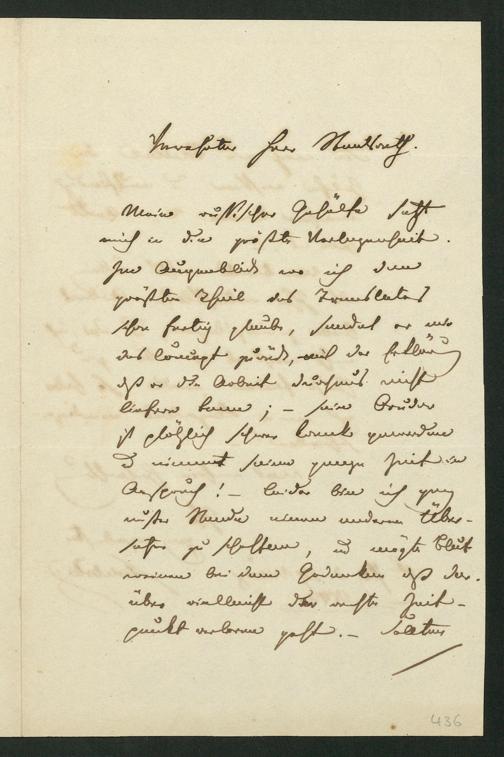 Verehrter Herr Staatsrath.
Mein russischer Gehülfe setzt
mich in die größte Verlegenheit.
Im Augenblick wo ich den
größten Theil des Translates
schon fertig glaube, sendet er mir
das Concept zurück, mit der Erklärung
daß er die Arbeit durchaus nicht
liefern könne; – sein Bruder
ist plötzlich schwer krank geworden
u nimmt seine ganze Zeit in
Anspruch! – Leider bin ich ganz
außer Stande einen anderen Über-
setzer zu schaffen, und mögte Blut
weinen bei dem Gedanken daß dar-
über vielleicht der rechte Zeit-
punkt verloren geht. – Sollten
436